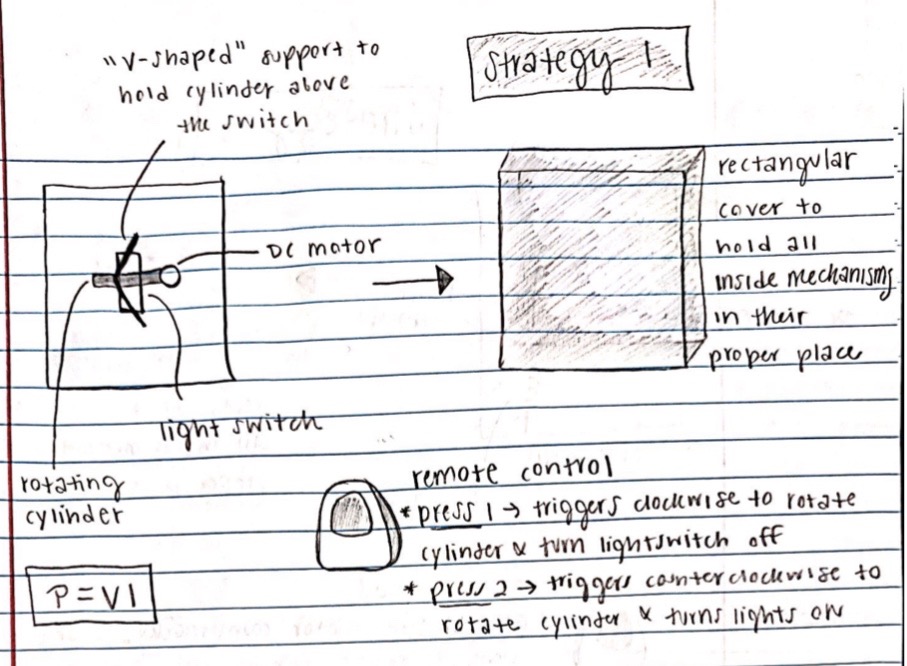 Strategy 1
"V-shaped" support to
hold cylinder above
the switch
DC motor
light switch
rotating
cylinder
rectangular
cover to
hold all
inside mechanisms
in their
proper place
remote control
* press 1 → triggers clockwise to rotate
cylinder & turn lightswitch off
* press 2 → triggers counterclockwise to
rotate cylinder & turns lights on
P = VI